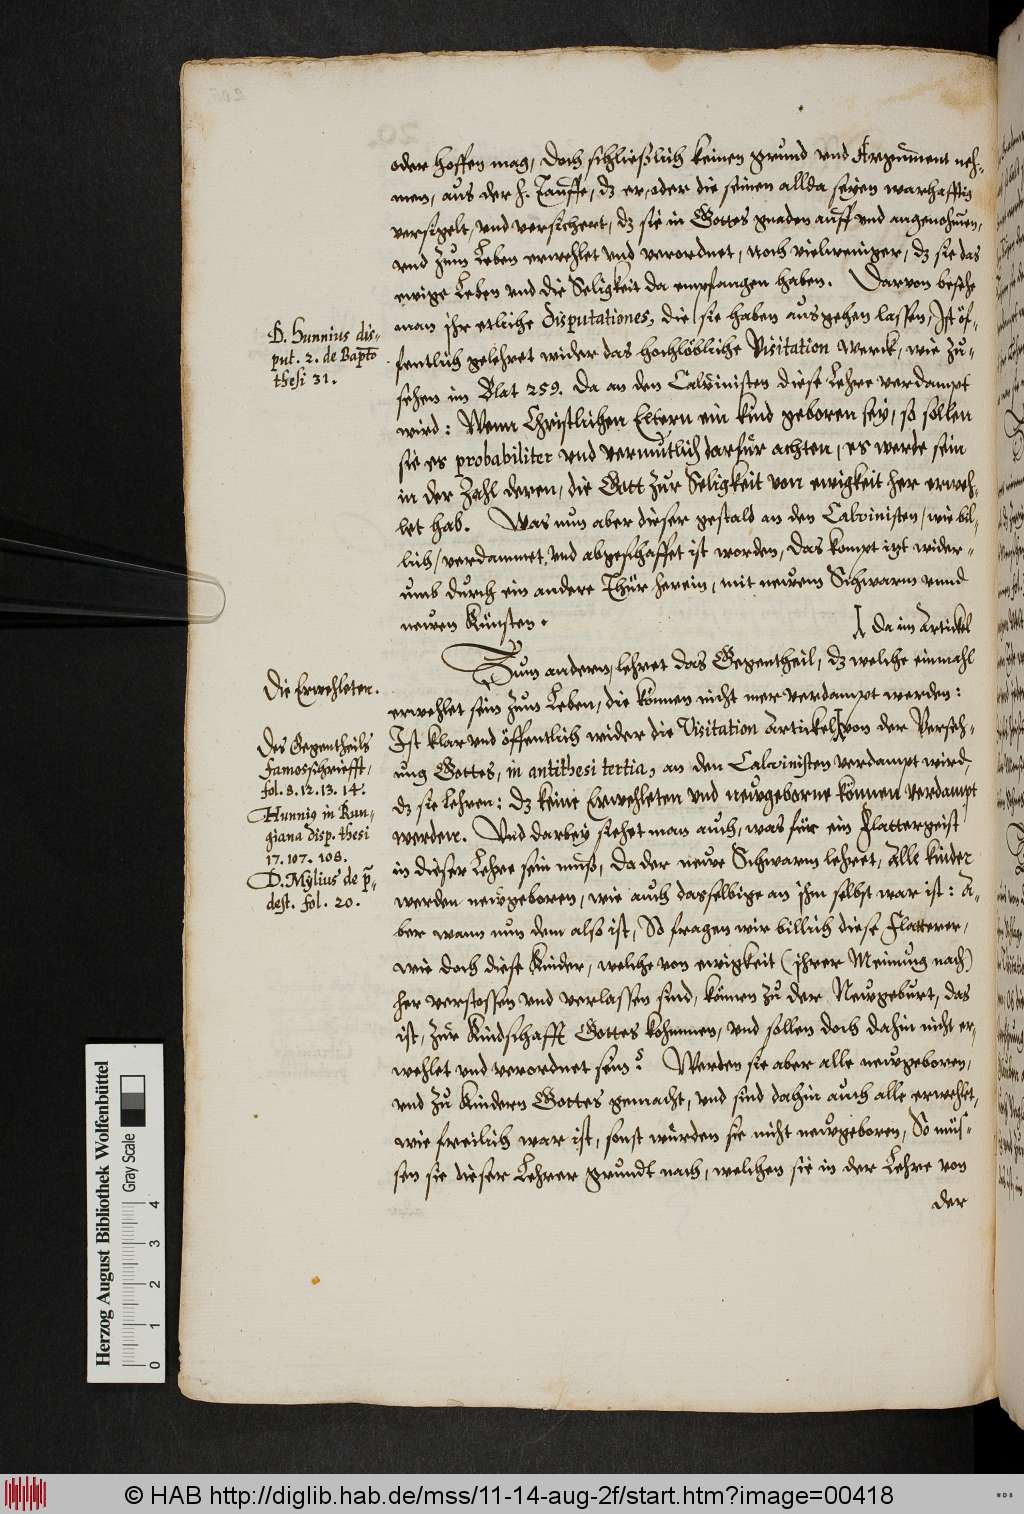 oder hoffen mag, doch schließlich keinen grund vnd Argument neh-
men, aus der h. Tauffe, dz er, oder die seinen allda seyen warhafftig
versigelt, vnd versichert, dz sie in Gottes gnaden auff vnd angenohmen,
vnd zum Leben erwehlet vnd verordnet, noch vielweniger, dz sie das
ewige Leben vnd die Seligkeit da empfangen haben. Darvon besehe
man ihr etliche disputationes, die sie haben ausgehen lassen, Ist öf-
fentlich gelehret wider das hochlöbliche Visitation werck, wie zu-
sehen im Blat 259. da an den Calvinisten diese Lehre verdampt
wird: Wenn Christlichen Eltern ein kind geboren sey, so sollen
sie es probabiliter vnd vermutlich darfür achten, es werde sein
in der Zahl deren, die Gott zur Seligkeit von ewigkeit her erweh-
let hab. Was nun aber dieser gestald an den Calvinisten, wie bil-
lich, verdammet vnd abgeschaffet ist worden, das kompt itzt wider-
umb durch ein andere Thür herein, mit newem Schwarm vnnd
newen Künsten.
D. Hunnius dis-
put. 2. de Bapto
thesi 31.
da im Artickel
Zum andern, lehret das Gegentheil, dz welche einmahl
erwehlet sein zum Leben, die können nicht mer verdampt werden:
Ist klar vnd öffentlich wider die Visitation Artickel von der Verseh-
ung Gottes, in antithesi tertia, an den Calvinisten verdampt wird,
dz sie lehren: dz keine Erwehleten vnd newgeborne können verdampt
werden. Vnd darbey siehet man auch, was für ein Flattergeist
in dieser Lehre sein muß, da der newe Schwarm lehret, Alle kinder
werden newgeboren, wie auch dasselbige an ihm selbst war ist: A-
ber wann nun dem also ist, So fragen wir billich diese Flatterer,
wie doch diese Kinder, welche von ewigkeit (ihrer Meinung nach)
her verstossen vnd verlassen sind, können zu der Newgeburt, das
ist, zur Kindschafft Gottes kohmmen, vnd sollen doch dahin nicht er-
wehlet vnd verordnet sein? Werden sie aber alle newgeboren,
vnd zu Kindern Gottes gemacht, vnd sind dahin auch alle erwehlet,
wie freilich war ist, sonst würden sie nicht newgeboren, So müs-
sen sie dieser Lehrer grundt nach, welchen sie in der Lehre von
der
Die Erwehleten.
Des Gegentheils
famosschriefft,
fol. 8. 12. 13. 14.
Hunnig in Run-
giana disp. thesi
17. 107. 108.
D. Mylius de p̄-
dest. fol. 20.
Herzog August Bibliothek Wolfenbüttel
Gray Scale
0 1 2 3 4
© HAB http://diglib.hab.de/mss/11-14-aug-2f/start.htm?image=00418